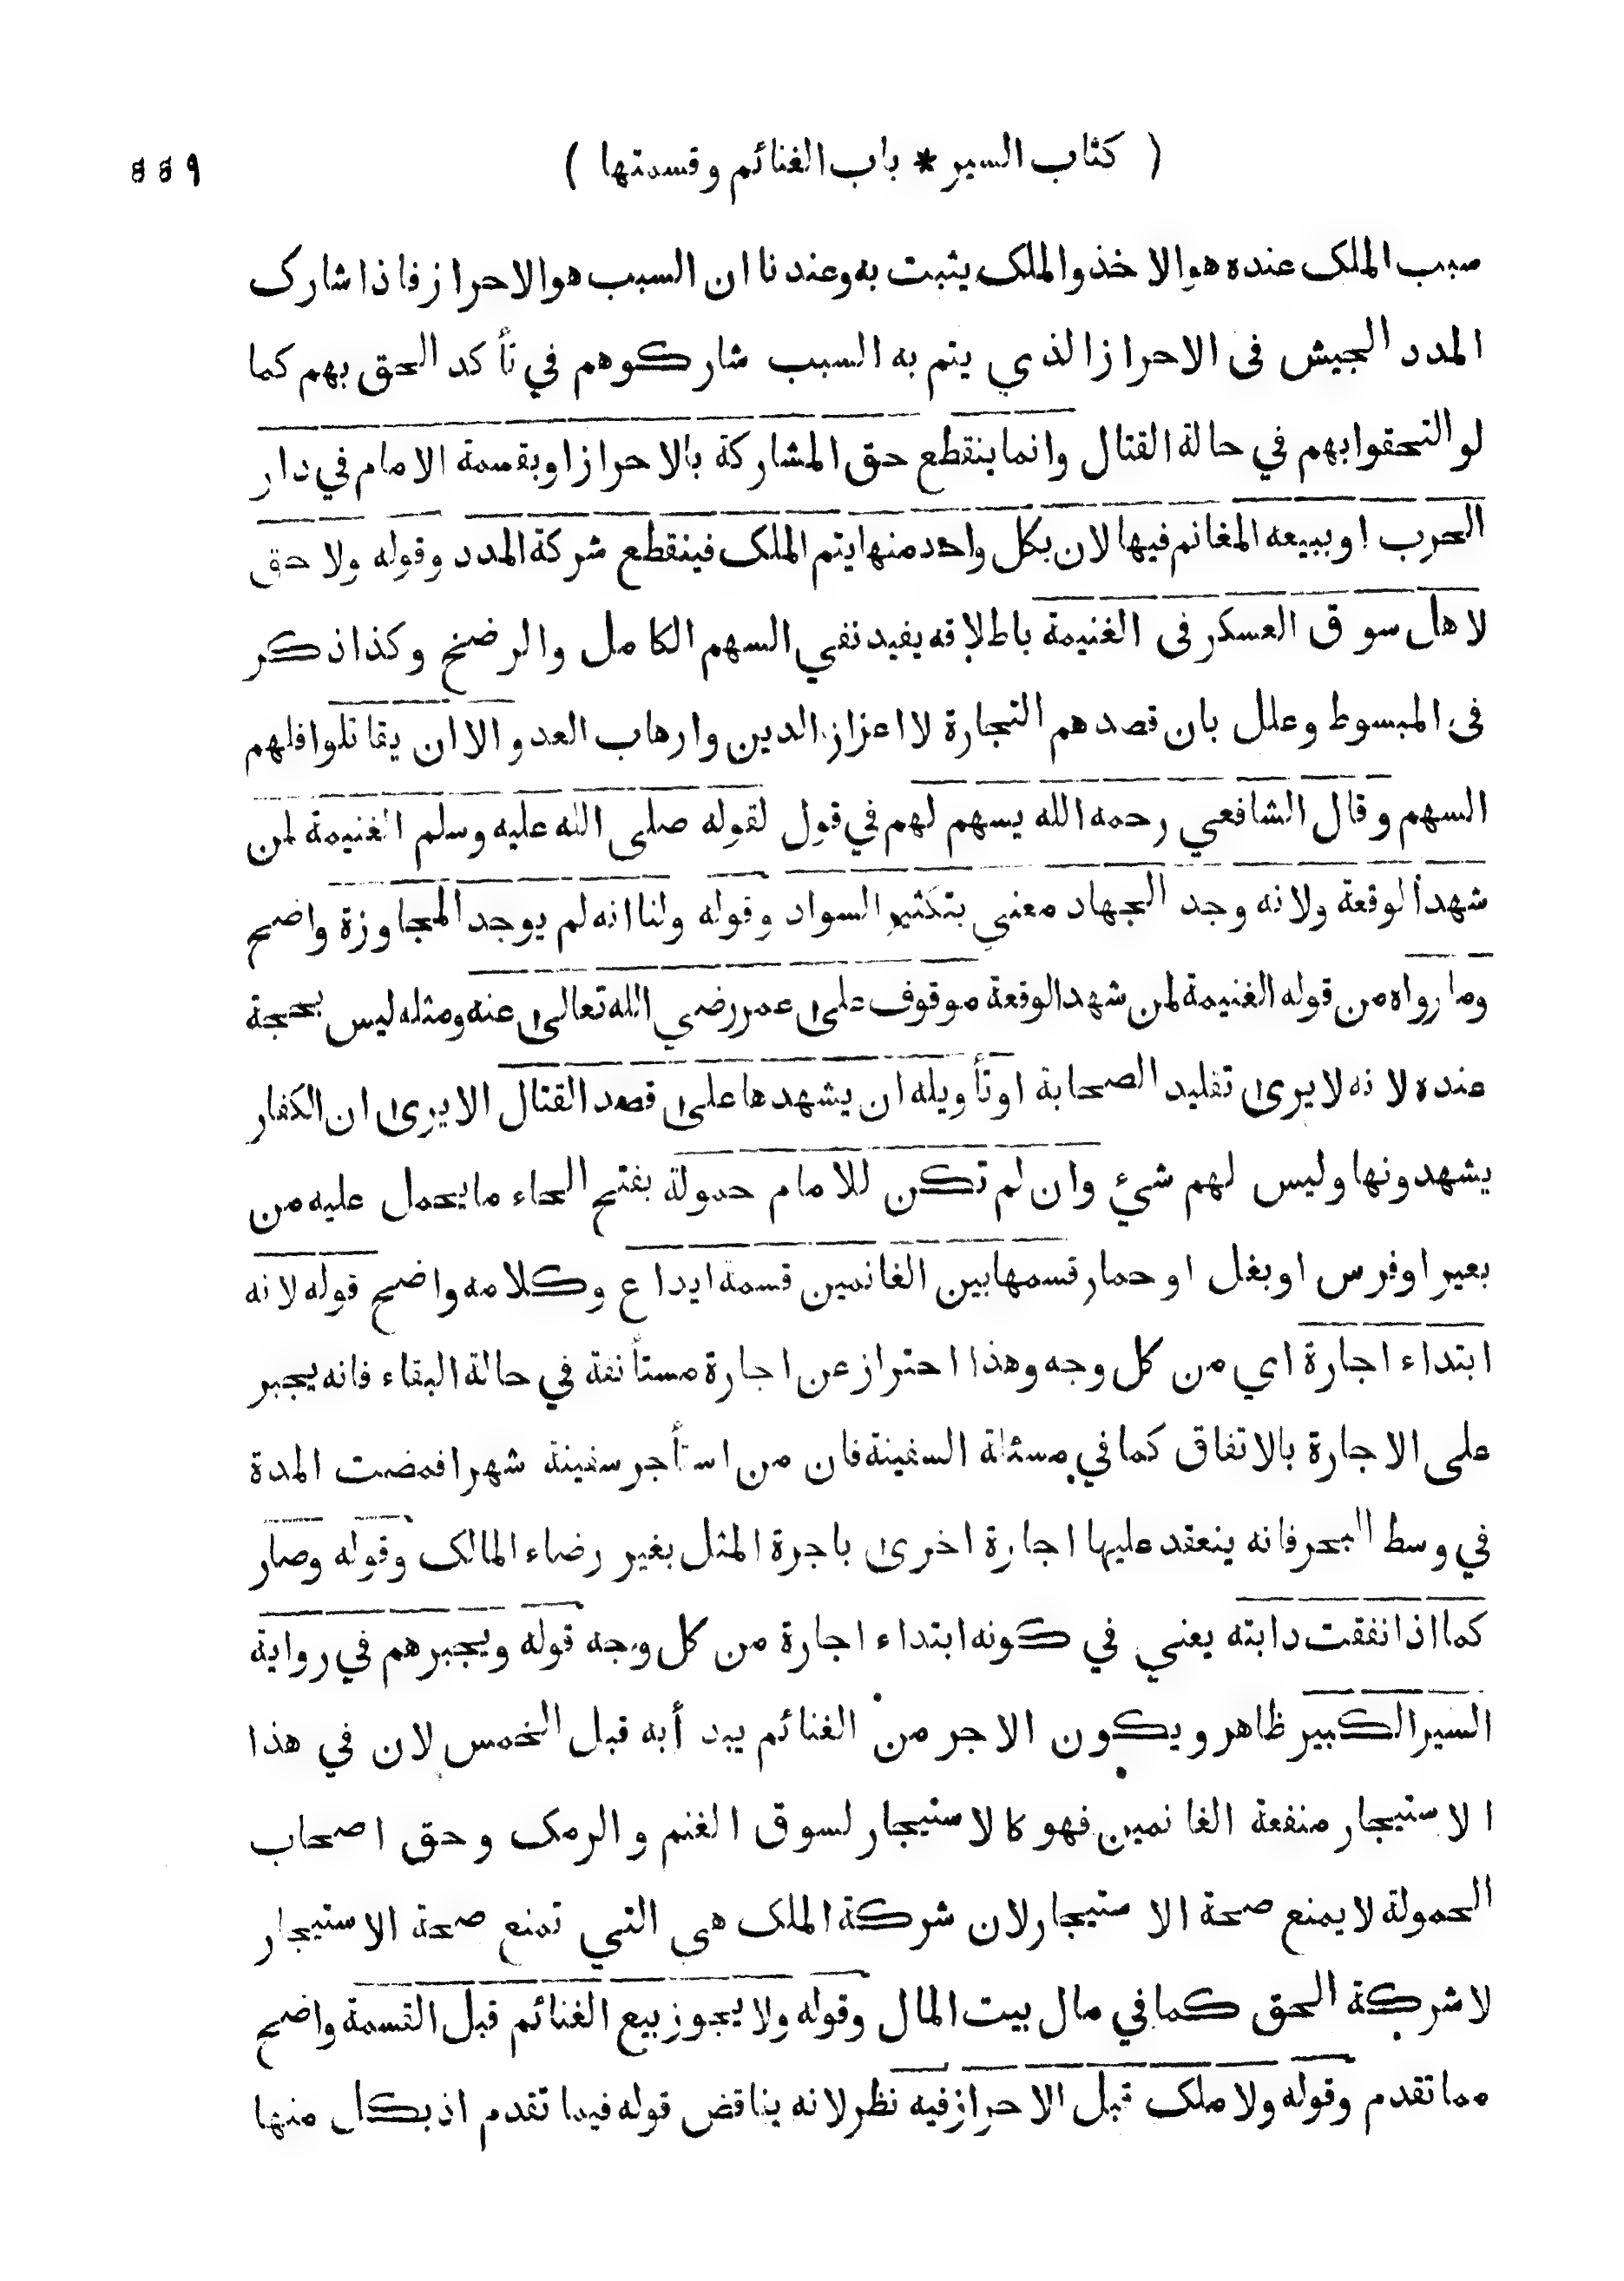 ( كتاب السير * باب الغنائم وقسمتها )
سبب الملك عنده هو الاخذ والملك يثبت به وعندنا ان السبب هو الاحراز فاذا شارك
المدد الجيش فى الاحراز الذي يتم به السبب شاركوهم في تأكد الحق بهم كما
لو التحقوا بهم في حالة القتال وانما ينقطع حق المشاركة بالاحراز او بقسمة الامام في دار
الحرب او ببيعه المغانم فيها لان بكل واحد منها يتم الملك فينقطع شركة المدد وقوله ولا حق
لاهل سوق العسكر فى الغنيمة باطلاقه يفيد نفي السهم الكامل والرضخ وكذا ذكر
فى المبسوط وعلل بان قصدهم التجارة لا اعزاز الدين وارهاب العدو الا ان يقاتلوا فلهم
السهم وقال الشافعي رحمه الله يسهم لهم في قول لقوله صلى الله عليه وسلم الغنيمة لمن
شهد الوقعة ولانه وجد الجهاد معنى بتكثير السواد وقوله ولنا انه لم يوجد المجاوزة واضح
وما رواه من قوله الغنيمة لمن شهد الوقعة موقوف على عمر رضي الله تعالى عنه ومثله ليس بحجة
عنده لانه لا يرى تقليد الصحابة او تأويله ان يشهدها على قصد القتال الا يرى ان الكفار
يشهدونها وليس لهم شيء وان لم تكن للامام حمولة بفتح الحاء ما يحمل عليه من
بعير او فرس او بغل او حمار قسمها بين الغانمين قسمة ايداع وكلامه واضح قوله لانه
ابتداء اجارة اي من كل وجه وهذا احتراز عن اجارة مستأنفة في حالة البقاء فانه يجبر
على الاجارة بالاتفاق كما في مسئلة السفينة فان من استأجر سفينة شهرا فمضت المدة
في وسط البحر فانه ينعقد عليها اجارة اخرى باجرة المثل بغير رضاء المالك وقوله وصار
كما اذا نفقت دابته يعني في كونه ابتداء اجارة من كل وجه قوله ويجبرهم في رواية
السير الكبير ظاهر ويكون الاجر من الغنائم يبدأ به قبل الخمس لان في هذا
الاستيجار منفعة الغانمين فهو كالاستيجار لسوق الغنم والرمك وحق اصحاب
الحمولة لا يمنع صحة الاستيجار لان شركة الملك هى التي تمنع صحة الاستيجار
لا شركة الحق كما في مال بيت المال وقوله ولا يجوز بيع الغنائم قبل القسمة واضح
مما تقدم وقوله ولا ملك قبل الاحراز فيه نظر لانه يناقض قوله فيما تقدم اذ بكل منها